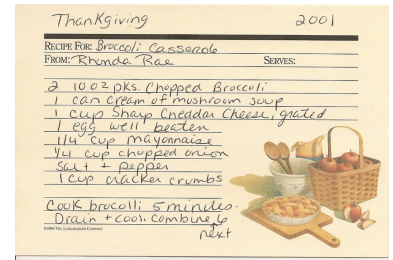 Thanksgiving 2001
RECIPE FOR: Broccoli Casserole
FROM: Rhonda Rae SERVES:
2 10 oz pks. Chopped Broccoli
1 can cream of mushroom soup
1 cup Sharp Cheddar Cheese, grated
1 egg well beaten
1/4 cup mayonnaise
1/4 cup chopped onion
Salt + pepper
1 cup cracker crumbs
Cook brocolli 5 minutes.
Drain + cool. Combine 6
next
THE LONGABERGER COMPANY